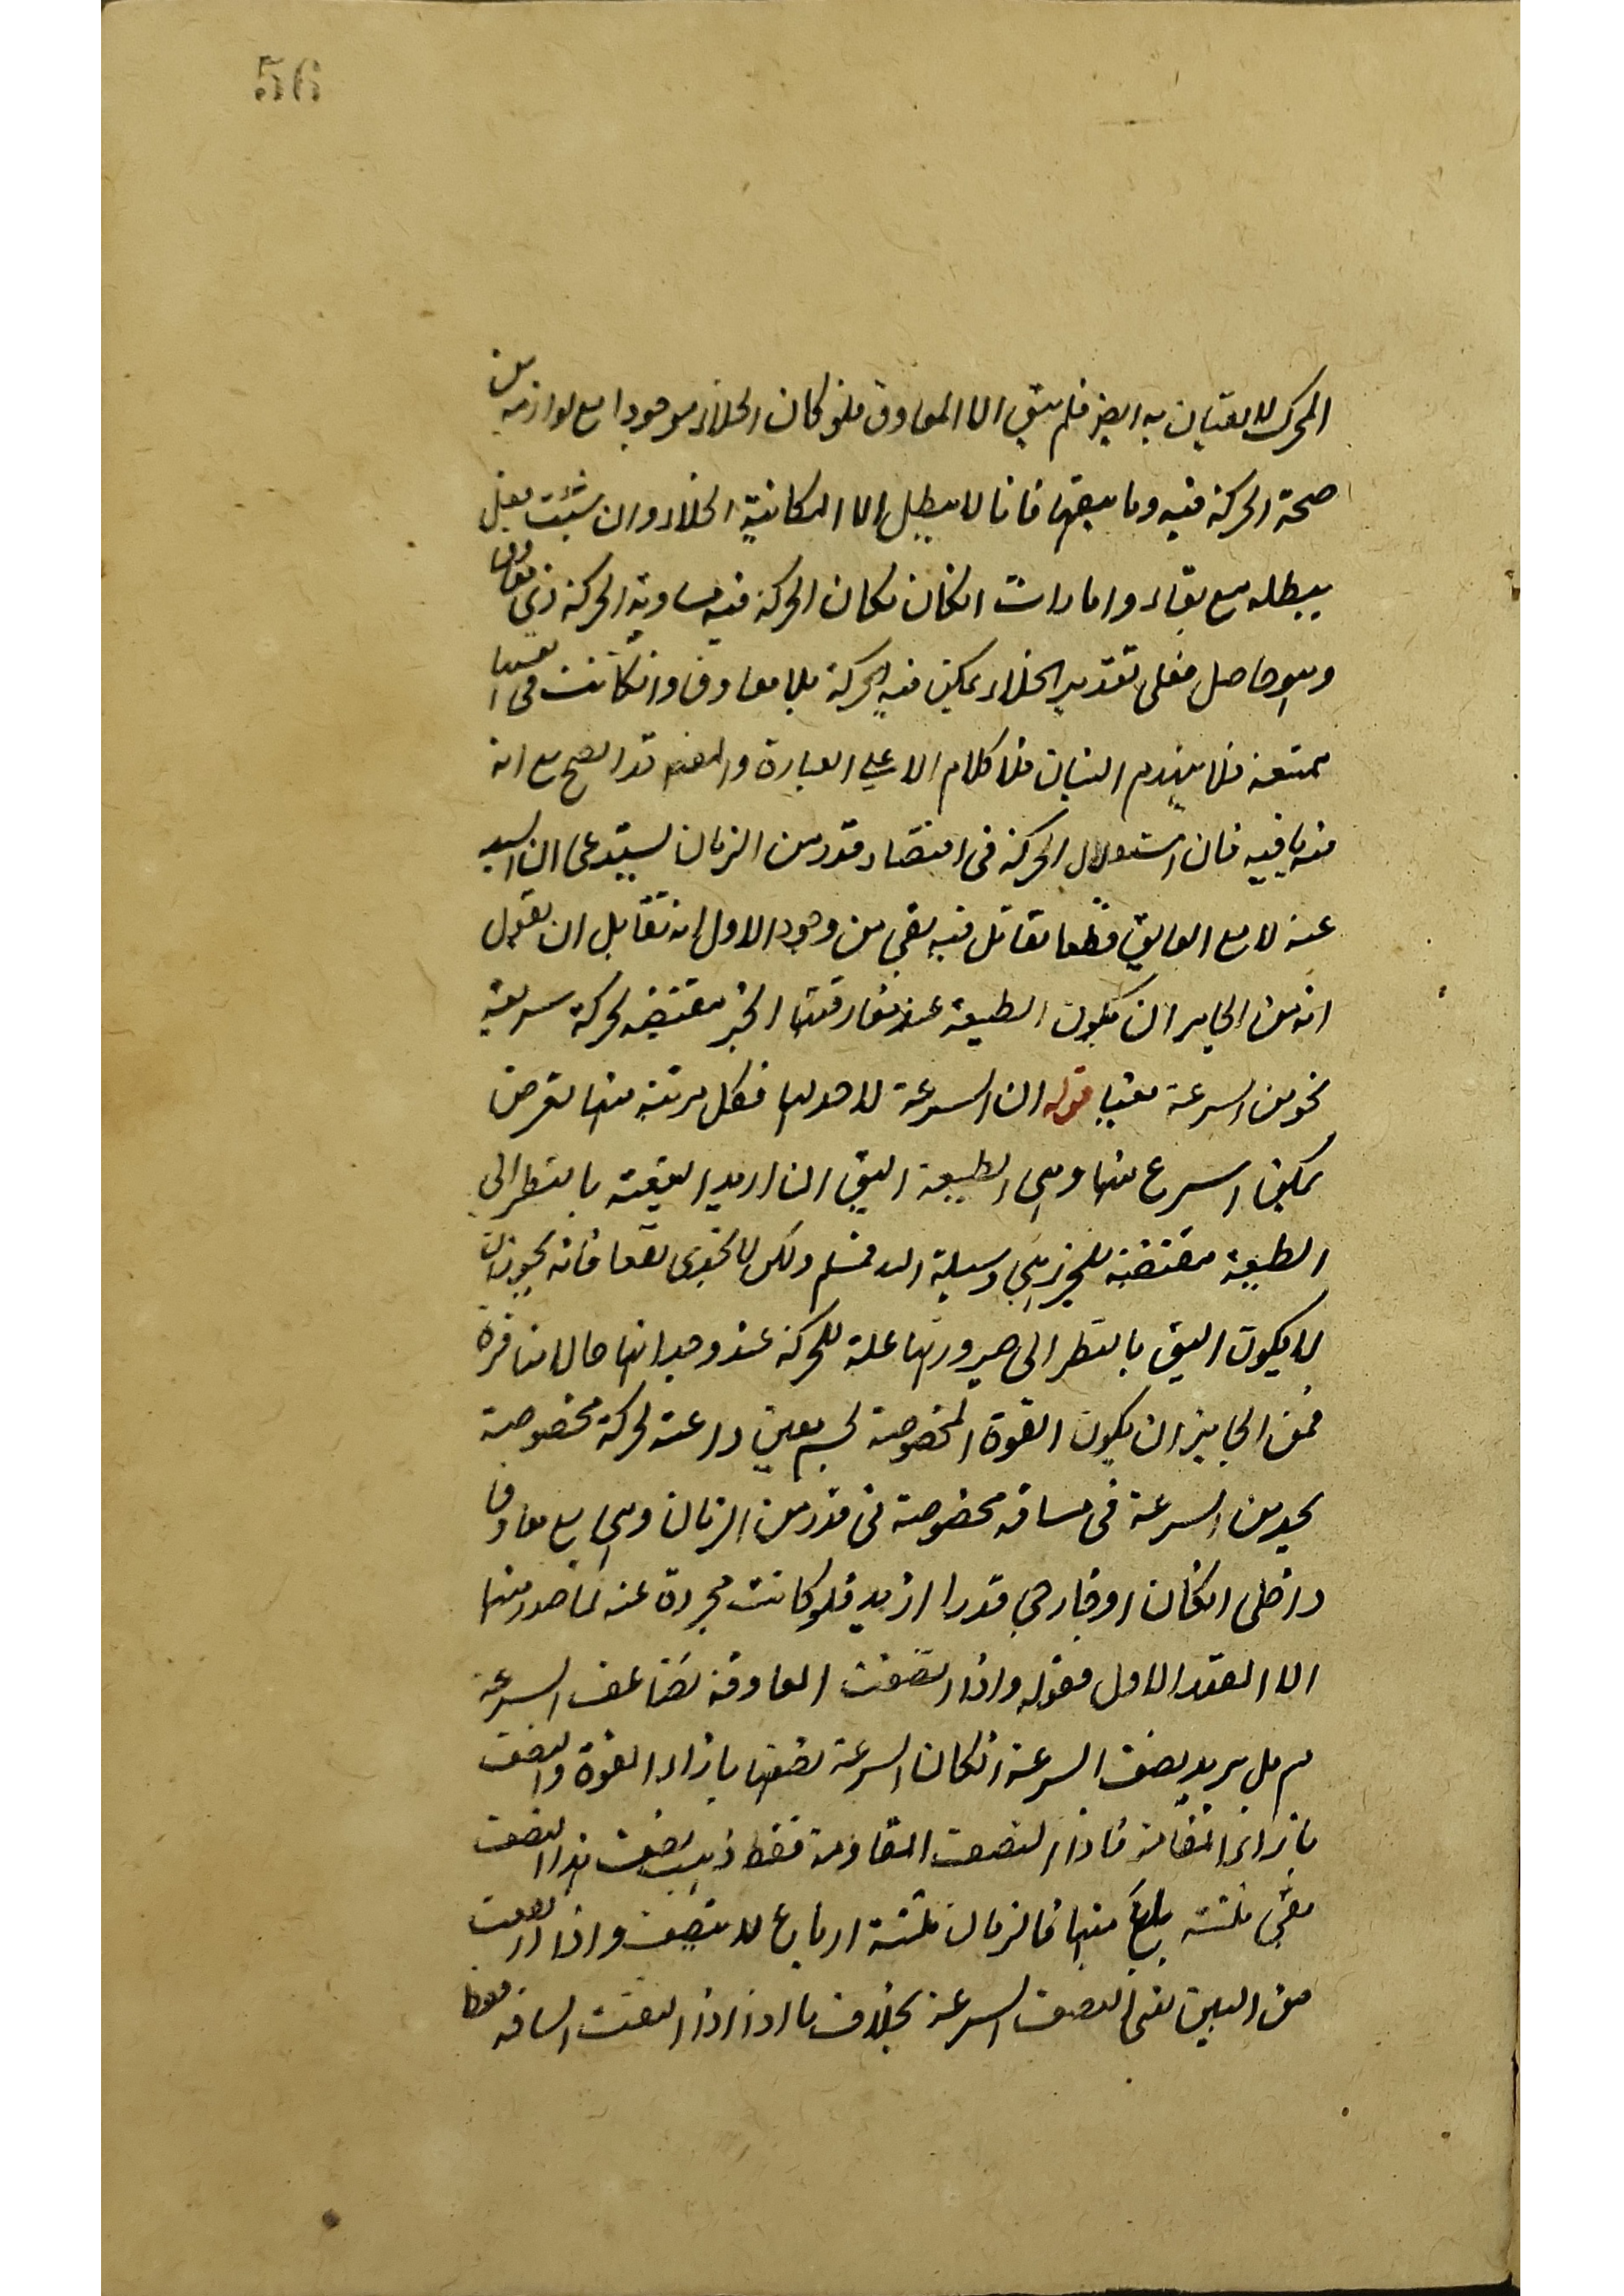 56
المحرك لا يفيان به ايضا فلم يبق الا المعاوق فلو كان الخلاء موجودا مع لوازمه من
صحة الحركة فيه وما يتبعها فانا لا يبطل الا امكانية الخلاء وان شئت فقل
يبطله مع بقاء وامارات انكان لكان الحركة فيه مساوية الحركة ذي معاوق
وليس حاصل فعلى تقدير الخلاء يمكن فيه الحركة بلا معاوق وانكانت في نفسها
ممتنعة فلا ينهدم البنيان فلا كلام الا على العبارة والمعنى قد اتضح مع انه
فيه ما فيه فان استقلال الحركة في اقتضاء قدر من الزمان يستدعي ان
عنه لا مع العايق قطعا تقاتل فيه بقي من وجوه الاول انه لقايل ان يقول
انه من الجايز ان يكون الطبيعة عند مفارقتها الحيز مقتضية لحركة سريعة
نحو من السرعة معينا قوله ان السرعة لا حد لها فكل مرتبة منها تفرض
يمكن اسرع منها وهي الطبيعة اليق ان اريد اليقية بالنظر الى
الطبيعة مقتضية للحيز هي وسيلة اليه فمسلم ولكن لا يجدي نفعا فانه يجوز ان
لا يكون اليق بالنظر الى صيرورتها علة للحركة عند وجدانها حالا منافرة
فمن الجايز ان يكون القوة المخصوصة لجسم معين داعية لحركة مخصوصة
بحد من السرعة في مسافة مخصوصة في قدر من الزمان وهي مع معاوق
داخلي انكان او خارجي قدرا ازيد فلو كانت مجردة عنه لما صدر منها
الا القدر الاول فقوله واذا انتصفت المعاوقة تضاعف السرعة
مم بل يزيد نصف السرعة انكان السرعة نصفها بازاء القوة والنصف
بازاء المقاومة فاذا انتصفت المقاومة فقط ذهب نصف هذا النصف
بقي ثلثة ارباع منها فالزمان ثلثة ارباع لا نصف واذا ارتفعت
من البين بقي النصف السرعة بخلاف ما اذا اذا انتصفت المسافة فقط